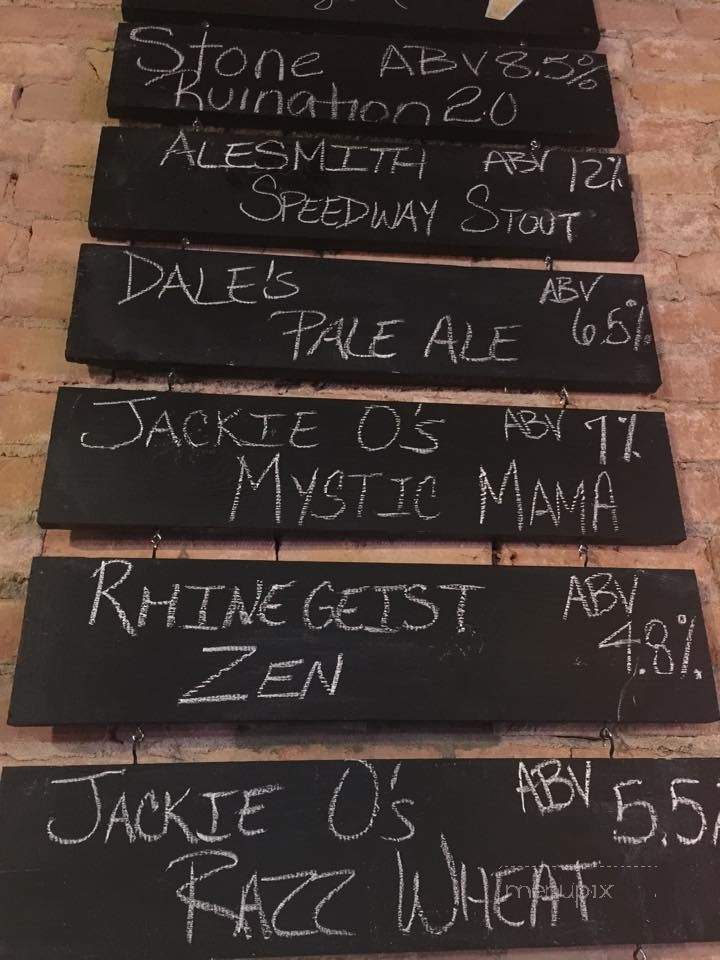 Stone ABV 8.5%
Ruination 2.0
ALESMITH ABV 12%
SPEEDWAY STOUT
DALE'S ABV
PALE ALE 6.5%
JACKIE O's ABV 7%
MYSTIC MAMA
RHINEGEIST ABV
ZEN 4.8%
JACKIE O's ABV 5.5%
RAZZ WHEAT
menupix